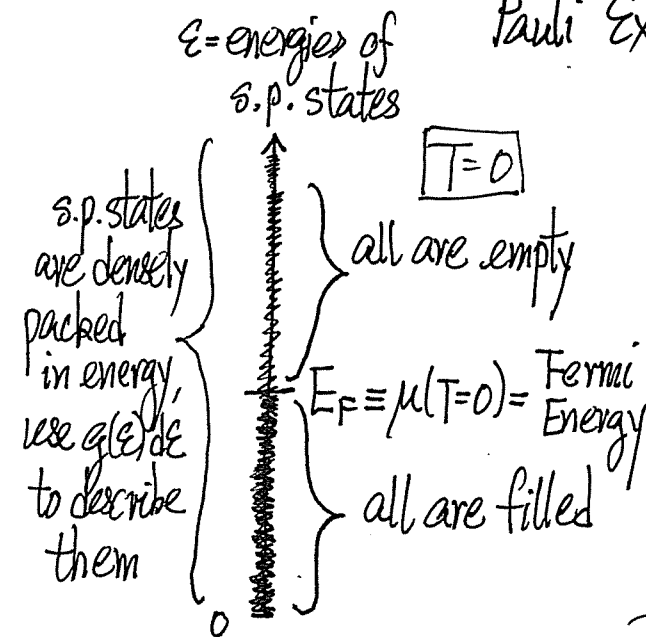 ε = energies of
s.p. states
Pauli Ex
T=0
s.p. states
are densely
packed
in energy,
use g(ε)dε
to describe
them
all are empty
E_F ≡ μ(T=0) = Fermi
Energy
all are filled
0